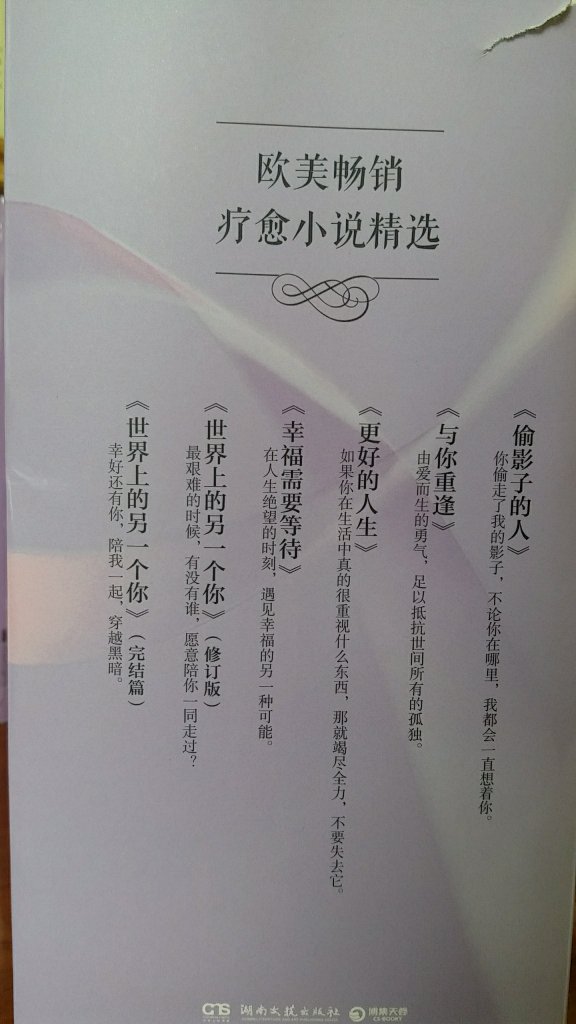 欧美畅销
疗愈小说精选
《偷影子的人》
你偷走了我的影子，不论你在哪里，我都会一直想着你。
《与你重逢》
由爱而生的勇气，足以抵抗世间所有的孤独。
《更好的人生》
如果你在生活中真的很重视什么东西，那就竭尽全力，不要失去它。
《幸福需要等待》
在人生绝望的时刻，遇见幸福的另一种可能。
《世界上的另一个你》（修订版）
最艰难的时候，有没有谁，愿意陪你一同走过？
《世界上的另一个你》（完结篇）
幸好还有你，陪我一起，穿越黑暗。
湖南文艺出版社
博集天卷
CS-BOOKY